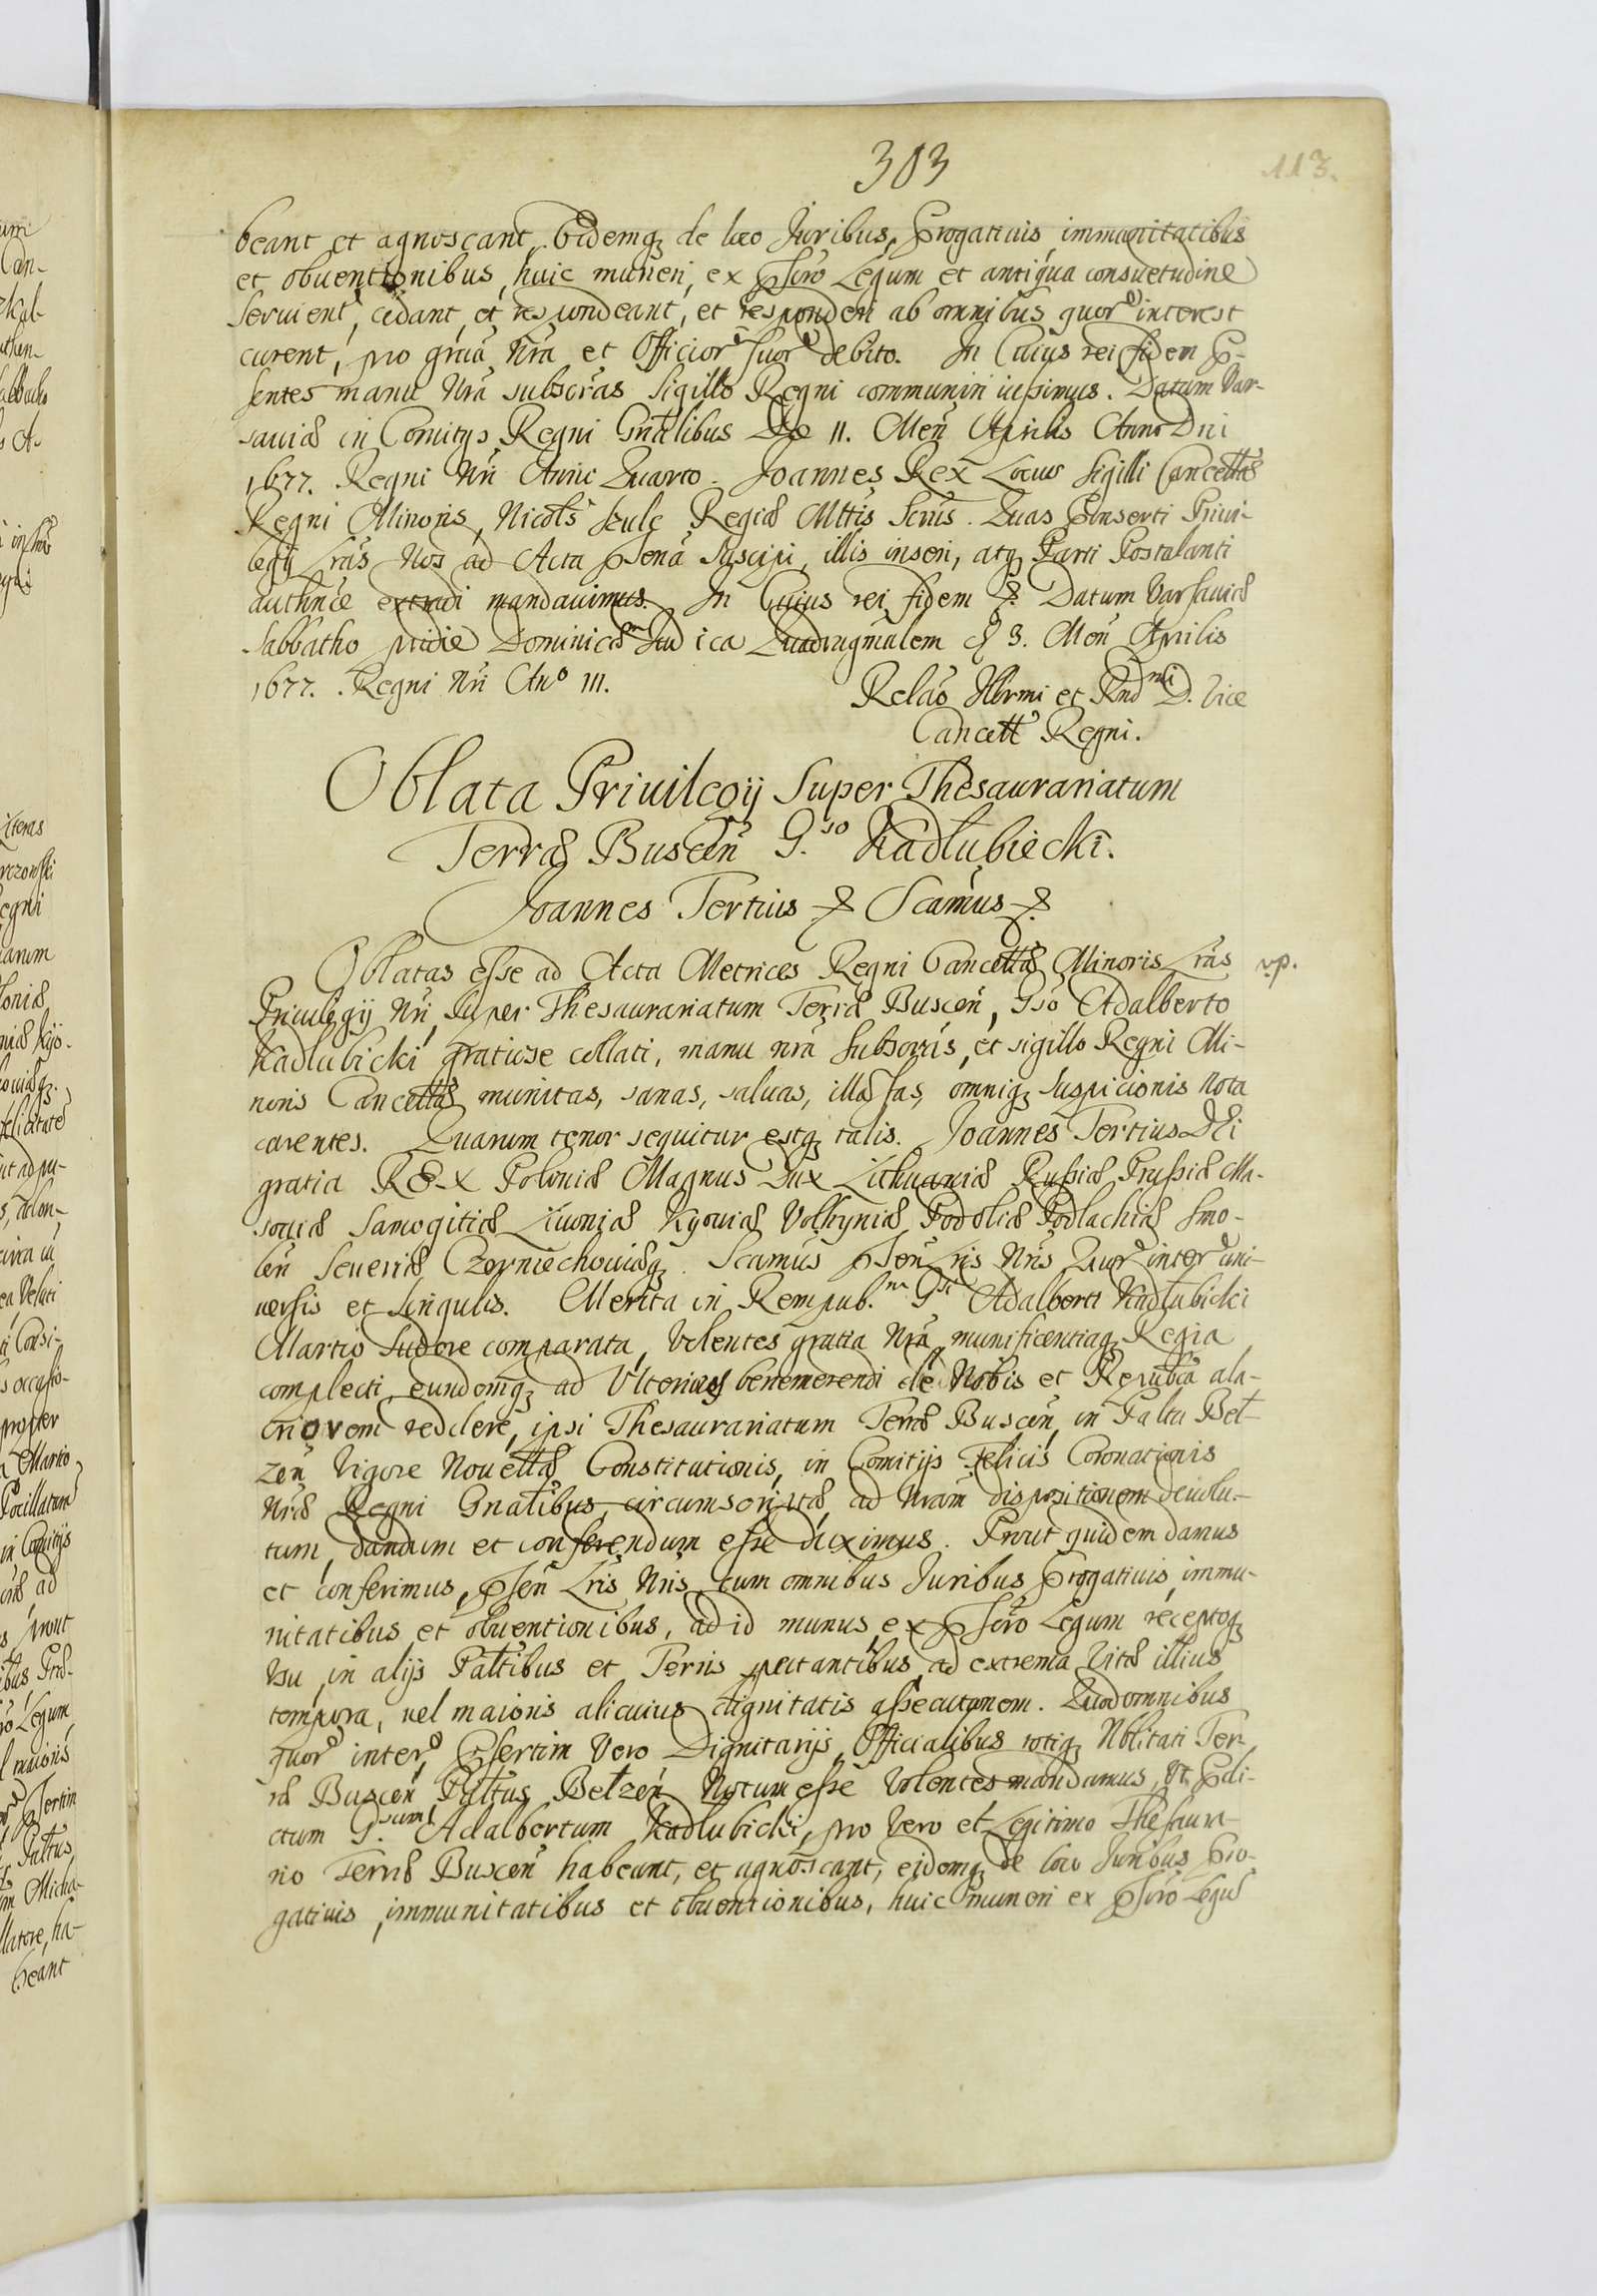 303
113.
beant et agnoscant, Eidemq de loco Juribus, Progatiuis immunitatibus
et obuentionibus, huic muneri, ex pscro Legum et antiqua consuetudine
seruient, cedant, et respondeant, et responderi ab omnibus quor interest
curent, pro gra Nra et Officior suor debito. In Cuius rei fidem P-
sentes manu Nra subscras Sigillo Regni communiri iussimus. Datum Var-
sauiæ in Comitys Regni Gnalibus Die 11. Men Aprilis Anno Dni
1677. Regni Nri Anno Quarto. Joannes Rex Locus Sigilli Cancellæ
Regni Minoris, Nicols Szulc Regiæ Mttis Scrius. Quas Pinserti Priui-
legy Lras Nos ad Acta psena suscipi, illis inseri, atq Parti Postulanti
authnce extradi mandauimus. In Cuius rei fidem &. Datum Varsauiæ
Sabbatho pridie Dominicæ Judica Quadragmalem d 3. Men Aprilis
1677. Regni Nri Ano III.
Relao Illrmi et Rndmi D. Vice
Cancell Regni.
Oblata Priuilegij Super Thesaurariatum
Terræ Buscen G.so Kadłubiecki.
Joannes Tertius & Scamus &
Oblatas esse ad Acta Metrices Regni Cancellæ Minoris Lras
vp.
Priuilegij Nri, Super Thesaurariatum Terræ Buscen, Gso Adalberto
Kadlubicki gratiose collati, manu nra subscris, et sigillo Regni Mi-
noris Cancellæ munitas, sanas, saluas, illæsas, omniq suspicionis nota
carentes. Quarum tenor sequitur estq talis. Joannes Tertius DEi
gratia REX Poloniæ Magnus Dux Lithuaniæ Russiæ Prussiæ Ma-
souiæ Samogitiæ Liuoniæ Kyouiæ Volhyniæ Podoliæ Podlachiæ Smo-
len Seueriæ Czerniechouiæq. Scamus psen Lris Nris Quor inter uni-
uersis et singulis. Merita in Rempub.m Gsi Adalberti Kadłubicki
Martio Sudore comparata, Volentes gratia Nra munificentiaq Regia
complecti eundemq ad Vlterius benemerendi de Nobis et Republca ala-
criorem reddere, ipsi Thesaurariatum Terræ Buscen, in Paltu Beł-
zen Vigore Nouellæ Constitutionis, in Comitijs Felicis Coronationis
Nræ Regni Gnalibus, circumscriptæ, ad Nram dispositionem deuolu-
tum, dandum et conferendum esse duximus. Prout quidem damus
et conferimus, psen Lris Nris cum omnibus Juribus Progatiuis, immu-
nitatibus et obuentionibus, ad id munus, ex pscro Legum receptoq
Vsu, in alijs Paltibus et Terris spectantibus, ad extrema Vitæ illius
tempora, uel maioris alicuius dignitatis assecutionem. Quod omnibus
quor inter, Psertim Vero Dignitarijs, Officialibus totiq Nblitati Ter-
ræ Buscen Paltus Bełzen Notum esse Volentes mandamus, Vt Pdi-
ctum G.sum Adalbertum Kadłubicki, pro Vero et Legitimo Thesaura-
rio Terræ Buscen habeant, et agnoscant, eidemq de loco Juribus Pro-
gatiuis, immunitatibus et obuentionibus, huic muneri ex pscro Legu